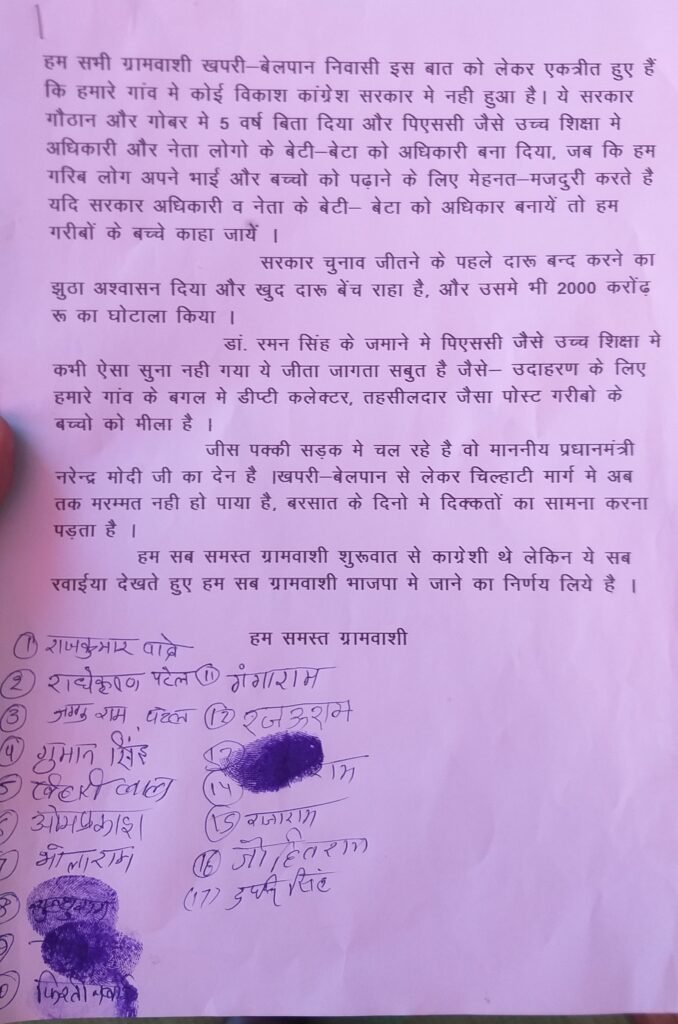 हम सभी ग्रामवाशी खपरी–बेलपान निवासी इस बात को लेकर एकत्रीत हुए हैं
कि हमारे गांव मे कोई विकाश कांग्रेश सरकार मे नही हुआ है। ये सरकार
गौठान और गोबर मे 5 वर्ष बिता दिया और पिएससी जैसे उच्च शिक्षा मे
अधिकारी और नेता लोगो के बेटी–बेटा को अधिकारी बना दिया, जब कि हम
गरिब लोग अपने भाई और बच्चो को पढ़ाने के लिए मेहनत–मजदुरी करते है
यदि सरकार अधिकारी व नेता के बेटी– बेटा को अधिकार बनायें तो हम
गरीबों के बच्चे काहा जायें ।
सरकार चुनाव जीतने के पहले दारू बन्द करने का
झुठा अश्वासन दिया और खुद दारू बेंच राहा है, और उसमे भी 2000 करोंढ़
रू का घोटाला किया ।
डां. रमन सिंह के जमाने मे पिएससी जैसे उच्च शिक्षा मे
कभी ऐसा सुना नही गया ये जीता जागता सबुत है जैसे– उदाहरण के लिए
हमारे गांव के बगल मे डीप्टी कलेक्टर, तहसीलदार जैसा पोस्ट गरीबो के
बच्चो को मीला है ।
जीस पक्की सड़क मे चल रहे है वो माननीय प्रधानमंत्री
नरेन्द्र मोदी जी का देन है ।खपरी–बेलपान से लेकर चिल्हाटी मार्ग मे अब
तक मरम्मत नही हो पाया है, बरसात के दिनो मे दिक्कतों का सामना करना
पड़ता है ।
हम सब समस्त ग्रामवाशी शुरूवात से काग्रेशी थे लेकिन ये सब
रवाईया देखते हुए हम सब ग्रामवाशी भाजपा मे जाने का निर्णय लिये है ।
हम समस्त ग्रामवाशी
① राजकुमार
② राधेकृष्ण पटेल ⑪ गंगाराम
③ राम पटेल ⑫
④ गुमान सिंह ⑬
5 लाल ⑭ राम
6 ओमप्रकाश ⑮
7 भोलाराम ⑯
8 (17) सिंह
9